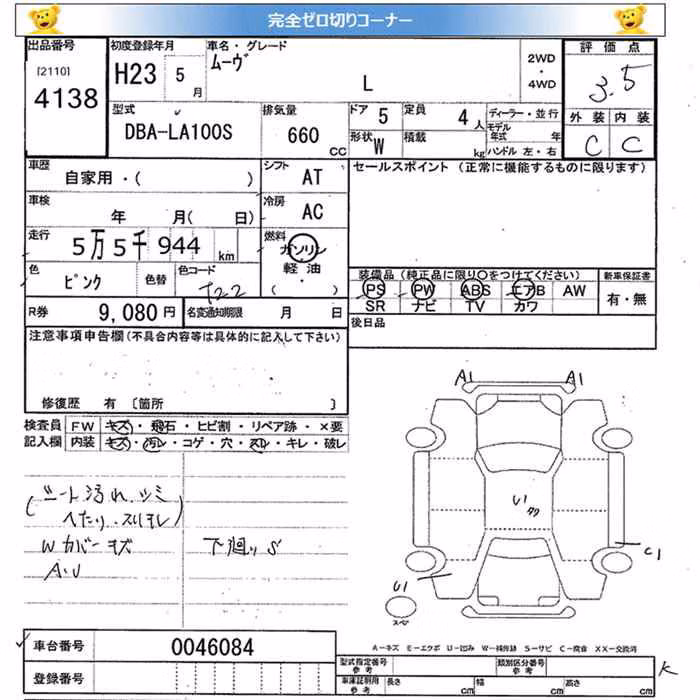 完全ゼロ切りコーナー
出品番号
[2110]
4138
初度登録年月
H23 5月
車名・グレード
ムーヴ
L
2WD
・
4WD
評価点
3.5
外装 内装
C C
型式
DBA-LA100S
排気量
660 CC
ドア 5
定員 4人
形状 W
積載 kg
ディーラー・並行
モデル年式 年
ハンドル 左・右
車歴
自家用・( )
シフト
AT
セールスポイント (正常に機能するものに限ります)
車検
年 月( 日)
冷房
AC
走行
5万5千944 km
燃料
ガソリン
軽油
( )
色
ピンク
色替
色コード
T22
装備品 (純正品に限り○をつけてください)
PS PW ABS エアB AW
SR ナビ TV カワ
新車保証書
有・無
R券 9,080円
名変通知期限 月 日
後日品
注意事項申告欄(不具合内容等は具体的に記入して下さい)
修復歴 有 〔箇所 〕
検査員
記入欄
FW キズ・飛石・ヒビ割・リペア跡・×要
内装 キズ・汚レ・コゲ・穴・スレ・キレ・破レ
(シート汚れ、シミ
へたり・スリキレ)
Wカバーキズ
A・U
下廻りS
A1 A1
U1
C1
U1
スペア
A-キズ E-エクボ U-凹み W-補修跡 S-サビ C-腐食 XX-交換済
車台番号 0046084
登録番号
型式指定番号
参考
類別区分番号
参考
車庫証明用
参考
長さ cm
幅 cm
高さ cm
K